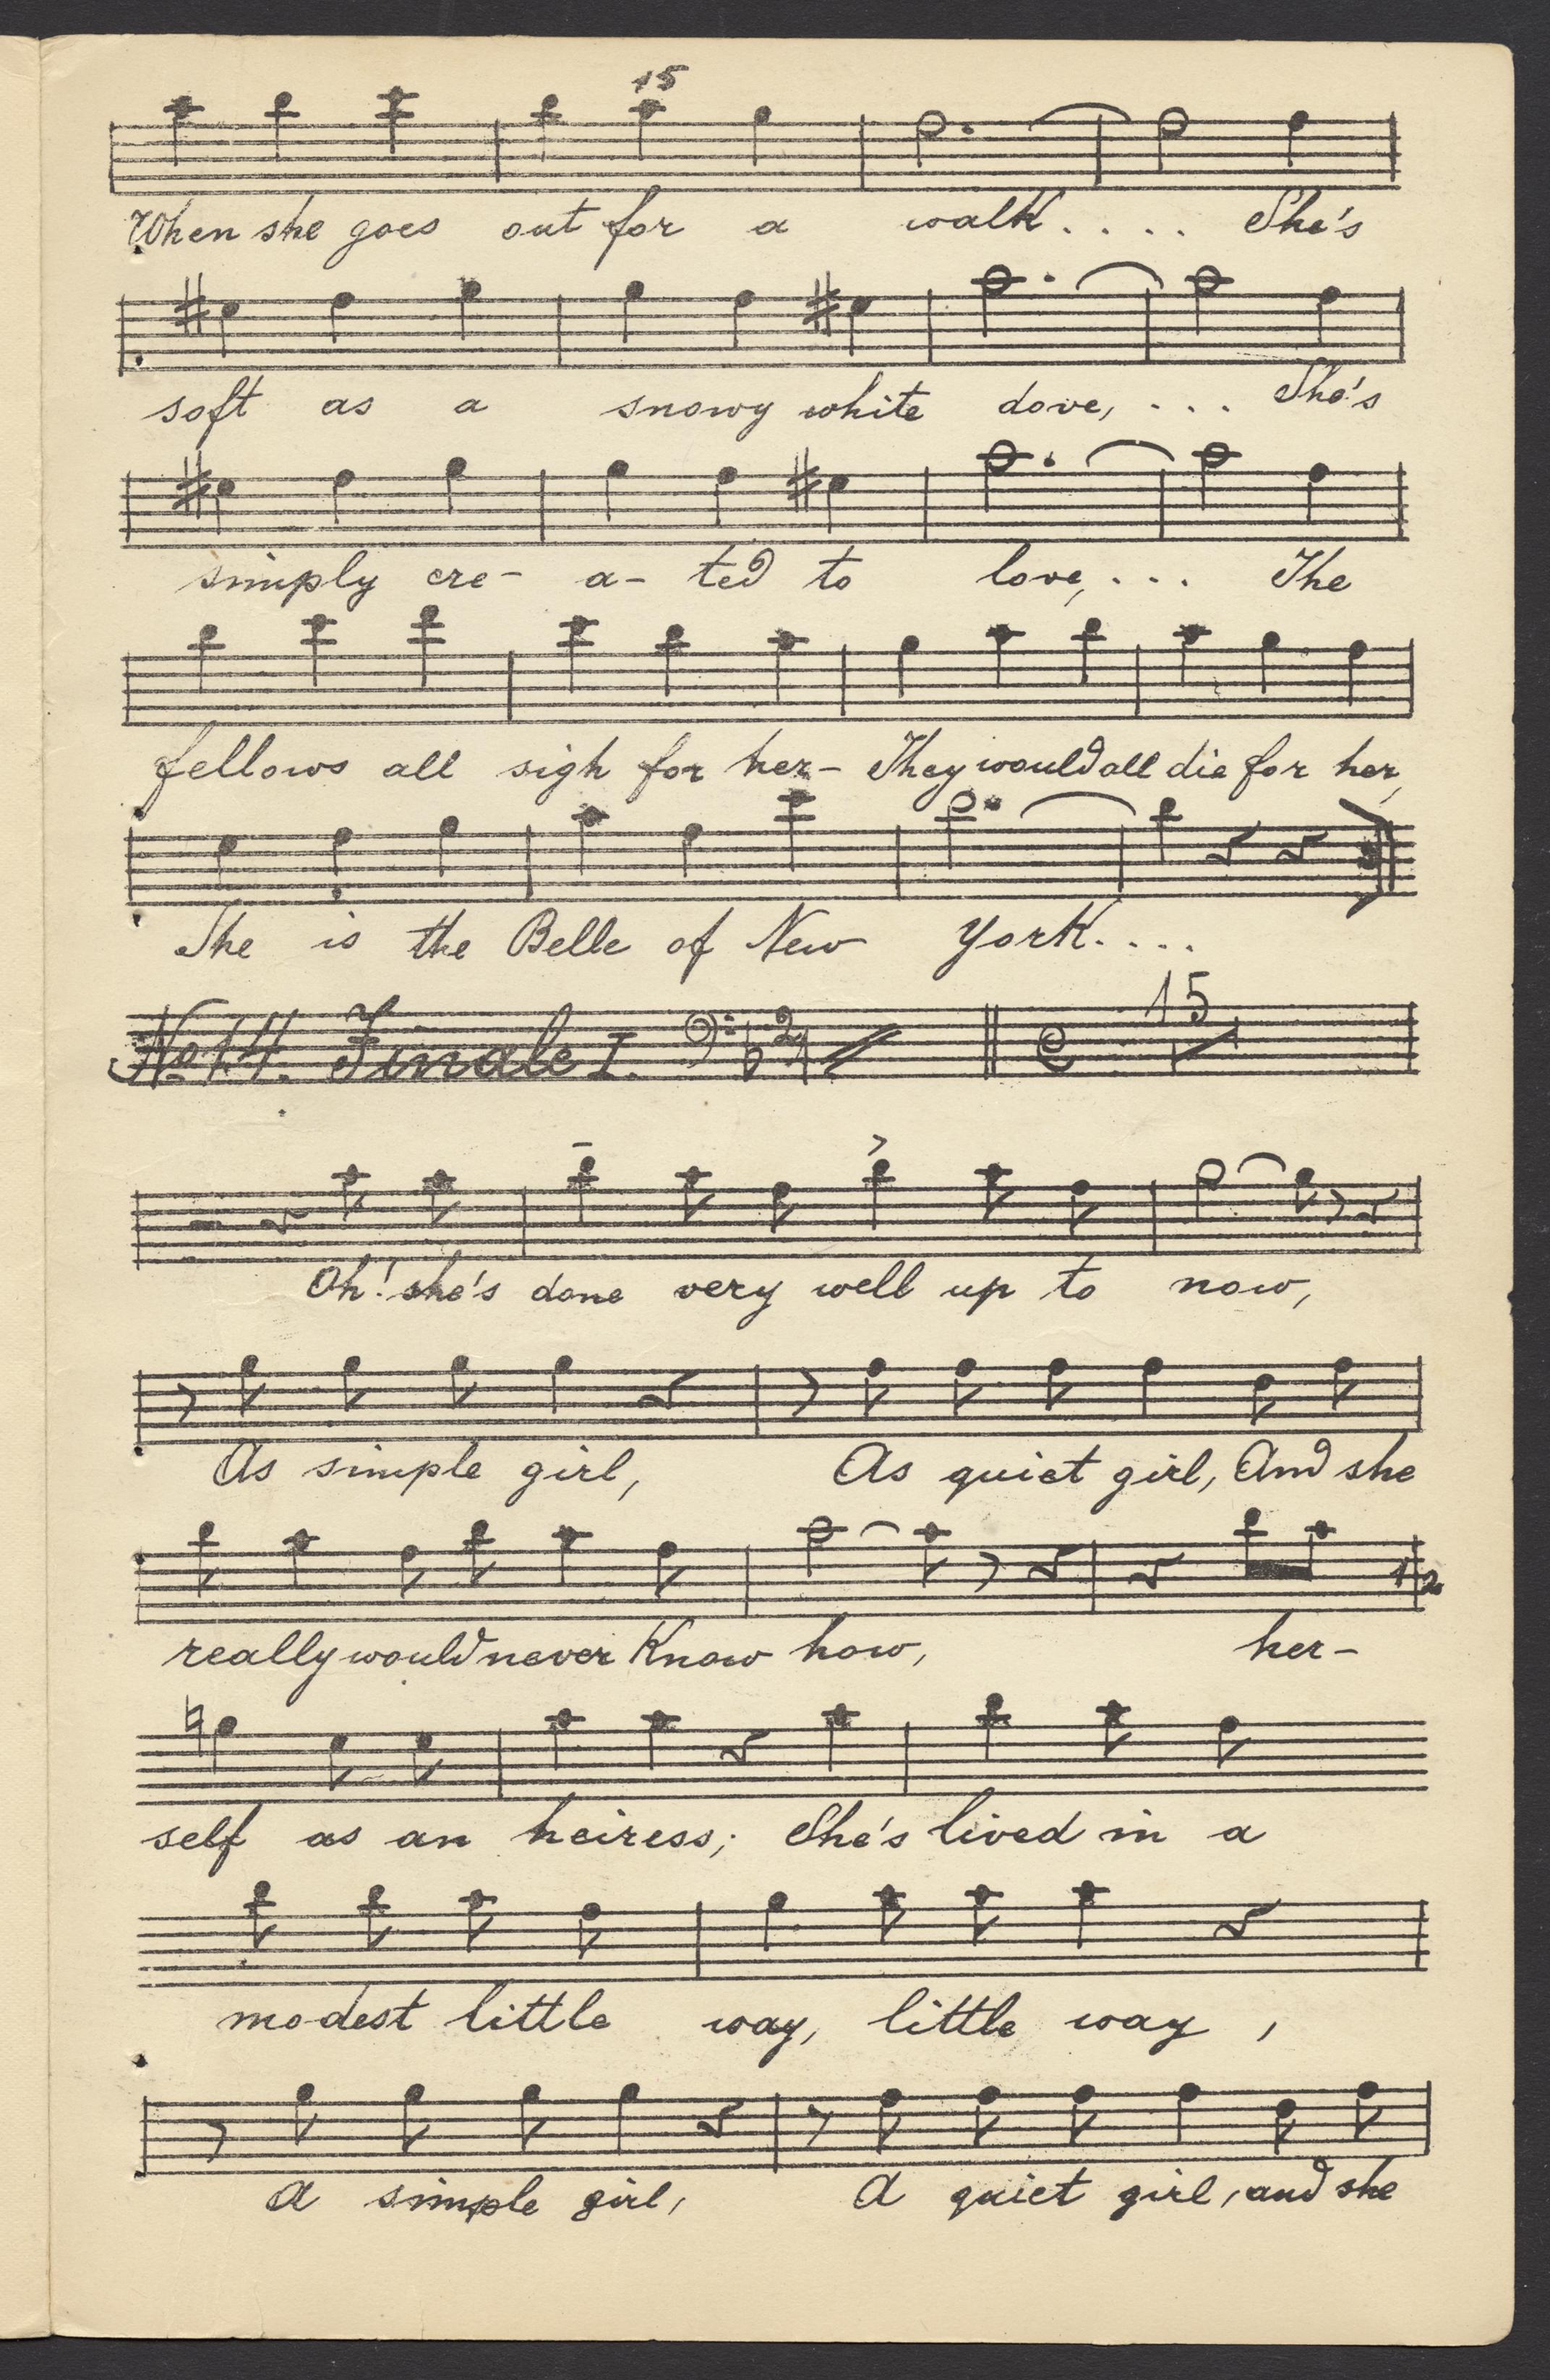 15
When she goes out for a walk.... She's
soft as a snowy white dove,... She's
simply cre- a- ted to love,... The
fellows all sigh for her- They would all die for her,
She is the Belle of New York....
No 14. Finale I. 2 4 15
Oh! she's done very well up to now,
As simple girl, As quiet girl, And she
really would never Know how, her-
self as an heiress; She's lived in a
modest little way, little way,
A simple girl, A quiet girl, and she